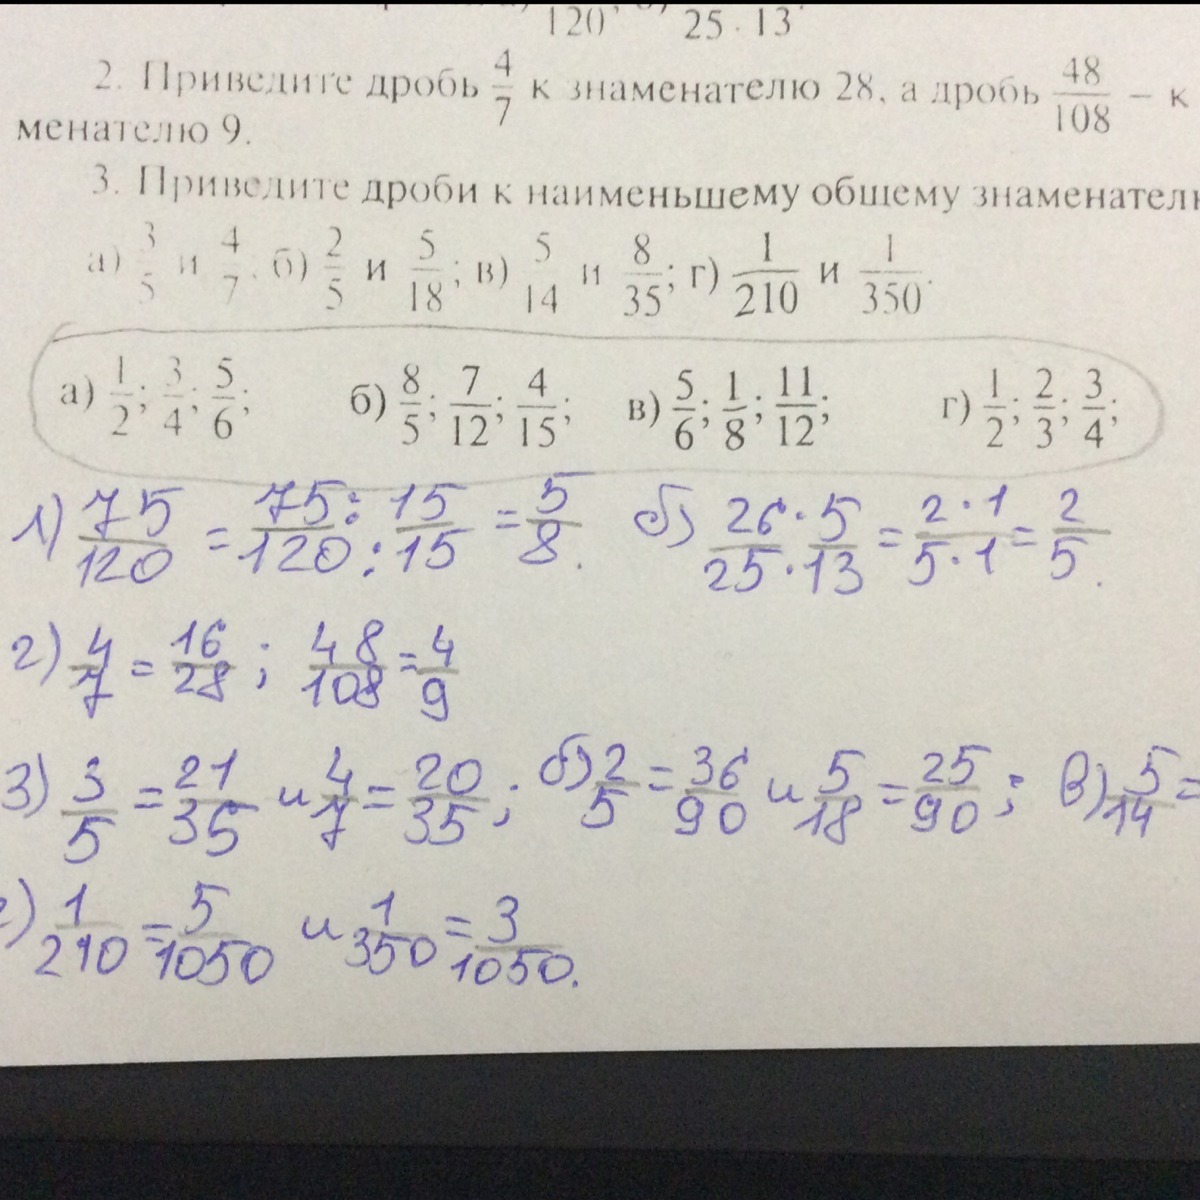 120; 25 · 13.
2. Приведите дробь 4/7 к знаменателю 28, а дробь 48/108 – к
менателю 9.
3. Приведите дроби к наименьшему общему знаменателю
а) 3/5 и 4/7. б) 2/5 и 5/18; в) 5/14 и 8/35; г) 1/210 и 1/350.
а) 1/2; 3/4; 5/6; б) 8/5; 7/12; 4/15; в) 5/6; 1/8; 11/12; г) 1/2; 2/3; 3/4;
1) 75/120 = 75:15/120:15 = 5/8. б) 26·5/25·13 = 2·1/5·1 = 2/5.
2) 4/7 = 16/28; 48/108 = 4/9
3) 3/5 = 21/35 и 4/7 = 20/35; б) 2/5 = 36/90 и 5/18 = 25/90; в) 5/14 =
г) 1/210 = 5/1050 и 1/350 = 3/1050.